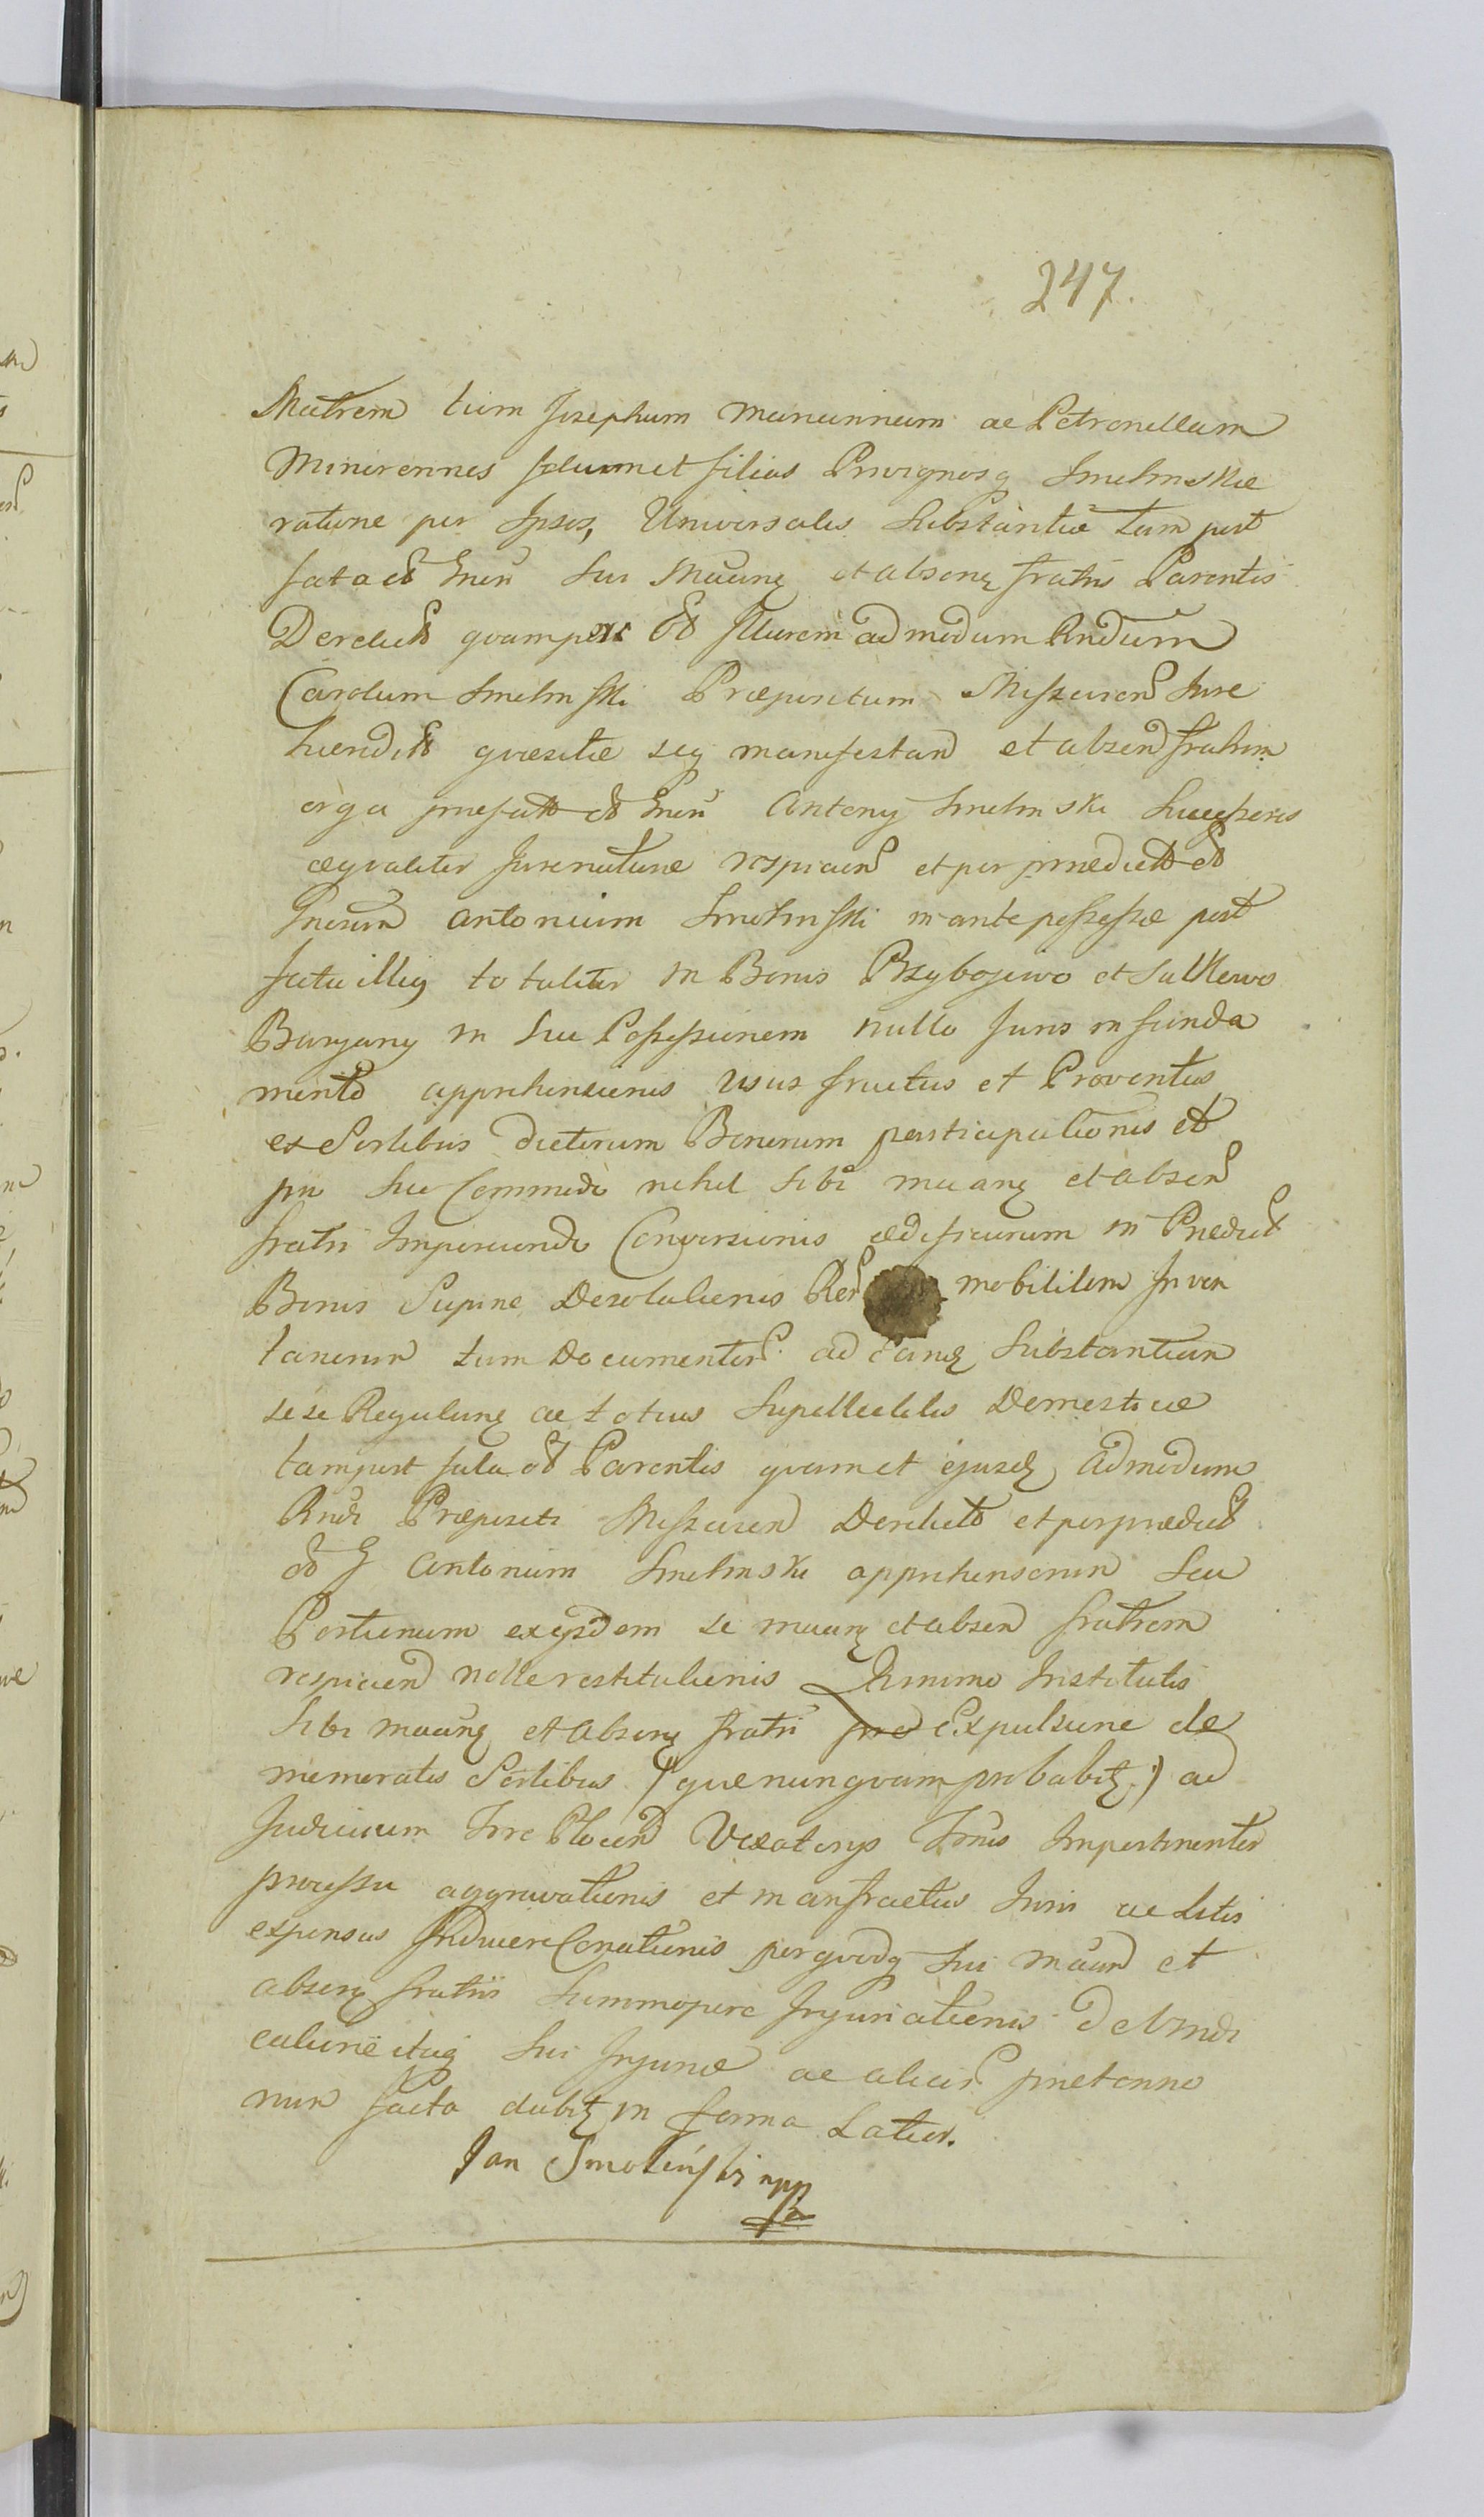 247.
Matrem tum Josephum Mariannam ac Petronellam
Minorennes filium et filias Privignosq Smolinskie
ratione per Ipsos, Universalis Substantiæ tam post
fata olt Gnen sui Manng et absenq fratris Parentis
Derelict quam per olt Illurem admodum Rndum
Carolum Smolinski Præpositum Miszeuien Jure
heredit quæsitæ seq manifestan et absen fratrem
erga præfatt olt Gnen Antony Smolinski Successores
æqualiter Jure naturæ respicien et per prædictt olt
Gnosum Antonium Smolinski in ante possessæ post
fata illiq totaliter in Bonis Przybojewo et Sulkowo
Baryany in sui Possessionem nullo Juris in funda
mento apprehensionis usus fructus et Proventus
ex Sortibus dictorum Bonorum participationis et
pro suo Commodo nihil sibi maanq et absen
fratri Imperiendo Conversionis ædificiorum in Prædict
Bonis Supine Desolationis Rer mobilium Inven
tariorum tum Documentor ad eanq Substantiam
sese Regulunq ac totius Supellectilis Domesticæ
tam post fata olt Parentis quam et ejusdq admodum
Rndi Præpositi Miszeuien Derelictt et per prædict
olt G Antonium Smolinski apprehensarum seu
Portionum ex ijsdem se maanq et absen fratrem
respicien nolle restitutionis Quinimo Institutis
Sibi maanq et Absenq fratri pro Expulsione de
memoratis Sortibus (que nunquam probabitq) ad
Judicium Trre Plocen Vexatorys Trnis Impertinenter
processu aggravationis et in anfractus Juris ac Litis
expensas Inducere Conationis per quodq sui maan et
absenq fratris Summopere Injuriationis De Vmdi
catione itaq sui Injuriæ ac alior prætensio
num facta dabitq in forma Latior.
Jan Smolinski mpp